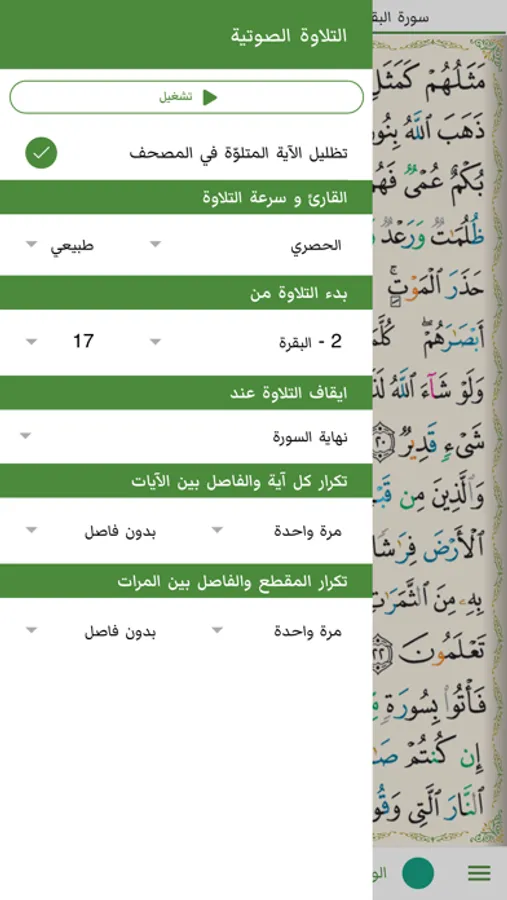 التلاوة الصوتية
تشغيل
تظليل الآية المتلوّة في المصحف
القارئ و سرعة التلاوة
الحصري طبيعي
بدء التلاوة من
2 - البقرة 17
ايقاف التلاوة عند
نهاية السورة
تكرار كل آية والفاصل بين الآيات
مرة واحدة بدون فاصل
تكرار المقطع والفاصل بين المرات
مرة واحدة بدون فاصل
سورة البق
مَثَلُهُمْ كَمَثَلِ
ذَهَبَ ٱللَّهُ بِنُو
بُكْمٌ عُمْيٌ فَهُمْ
ظُلُمَٰتٌ وَرَعْدٌ
حَذَرَ ٱلْمَوْتِ ۚ
أَبْصَٰرَهُمْ ۖ كُلَّمَ
وَلَوْ شَآءَ ٱللَّهُ لَذَ
شَىْءٍ قَدِيرٌ ٢٠
وَٱلَّذِينَ مِن قَبْ
ٱلْأَرْضَ فِرَٰشًا
بِهِۦ مِنَ ٱلثَّمَرَٰتِ
تَعْلَمُونَ ٢٢
فَأْتُوا۟ بِسُورَةٍ مِّ
إِن كُنتُمْ صَٰ
ٱلنَّارَ ٱلَّتِى وَقُو
الو